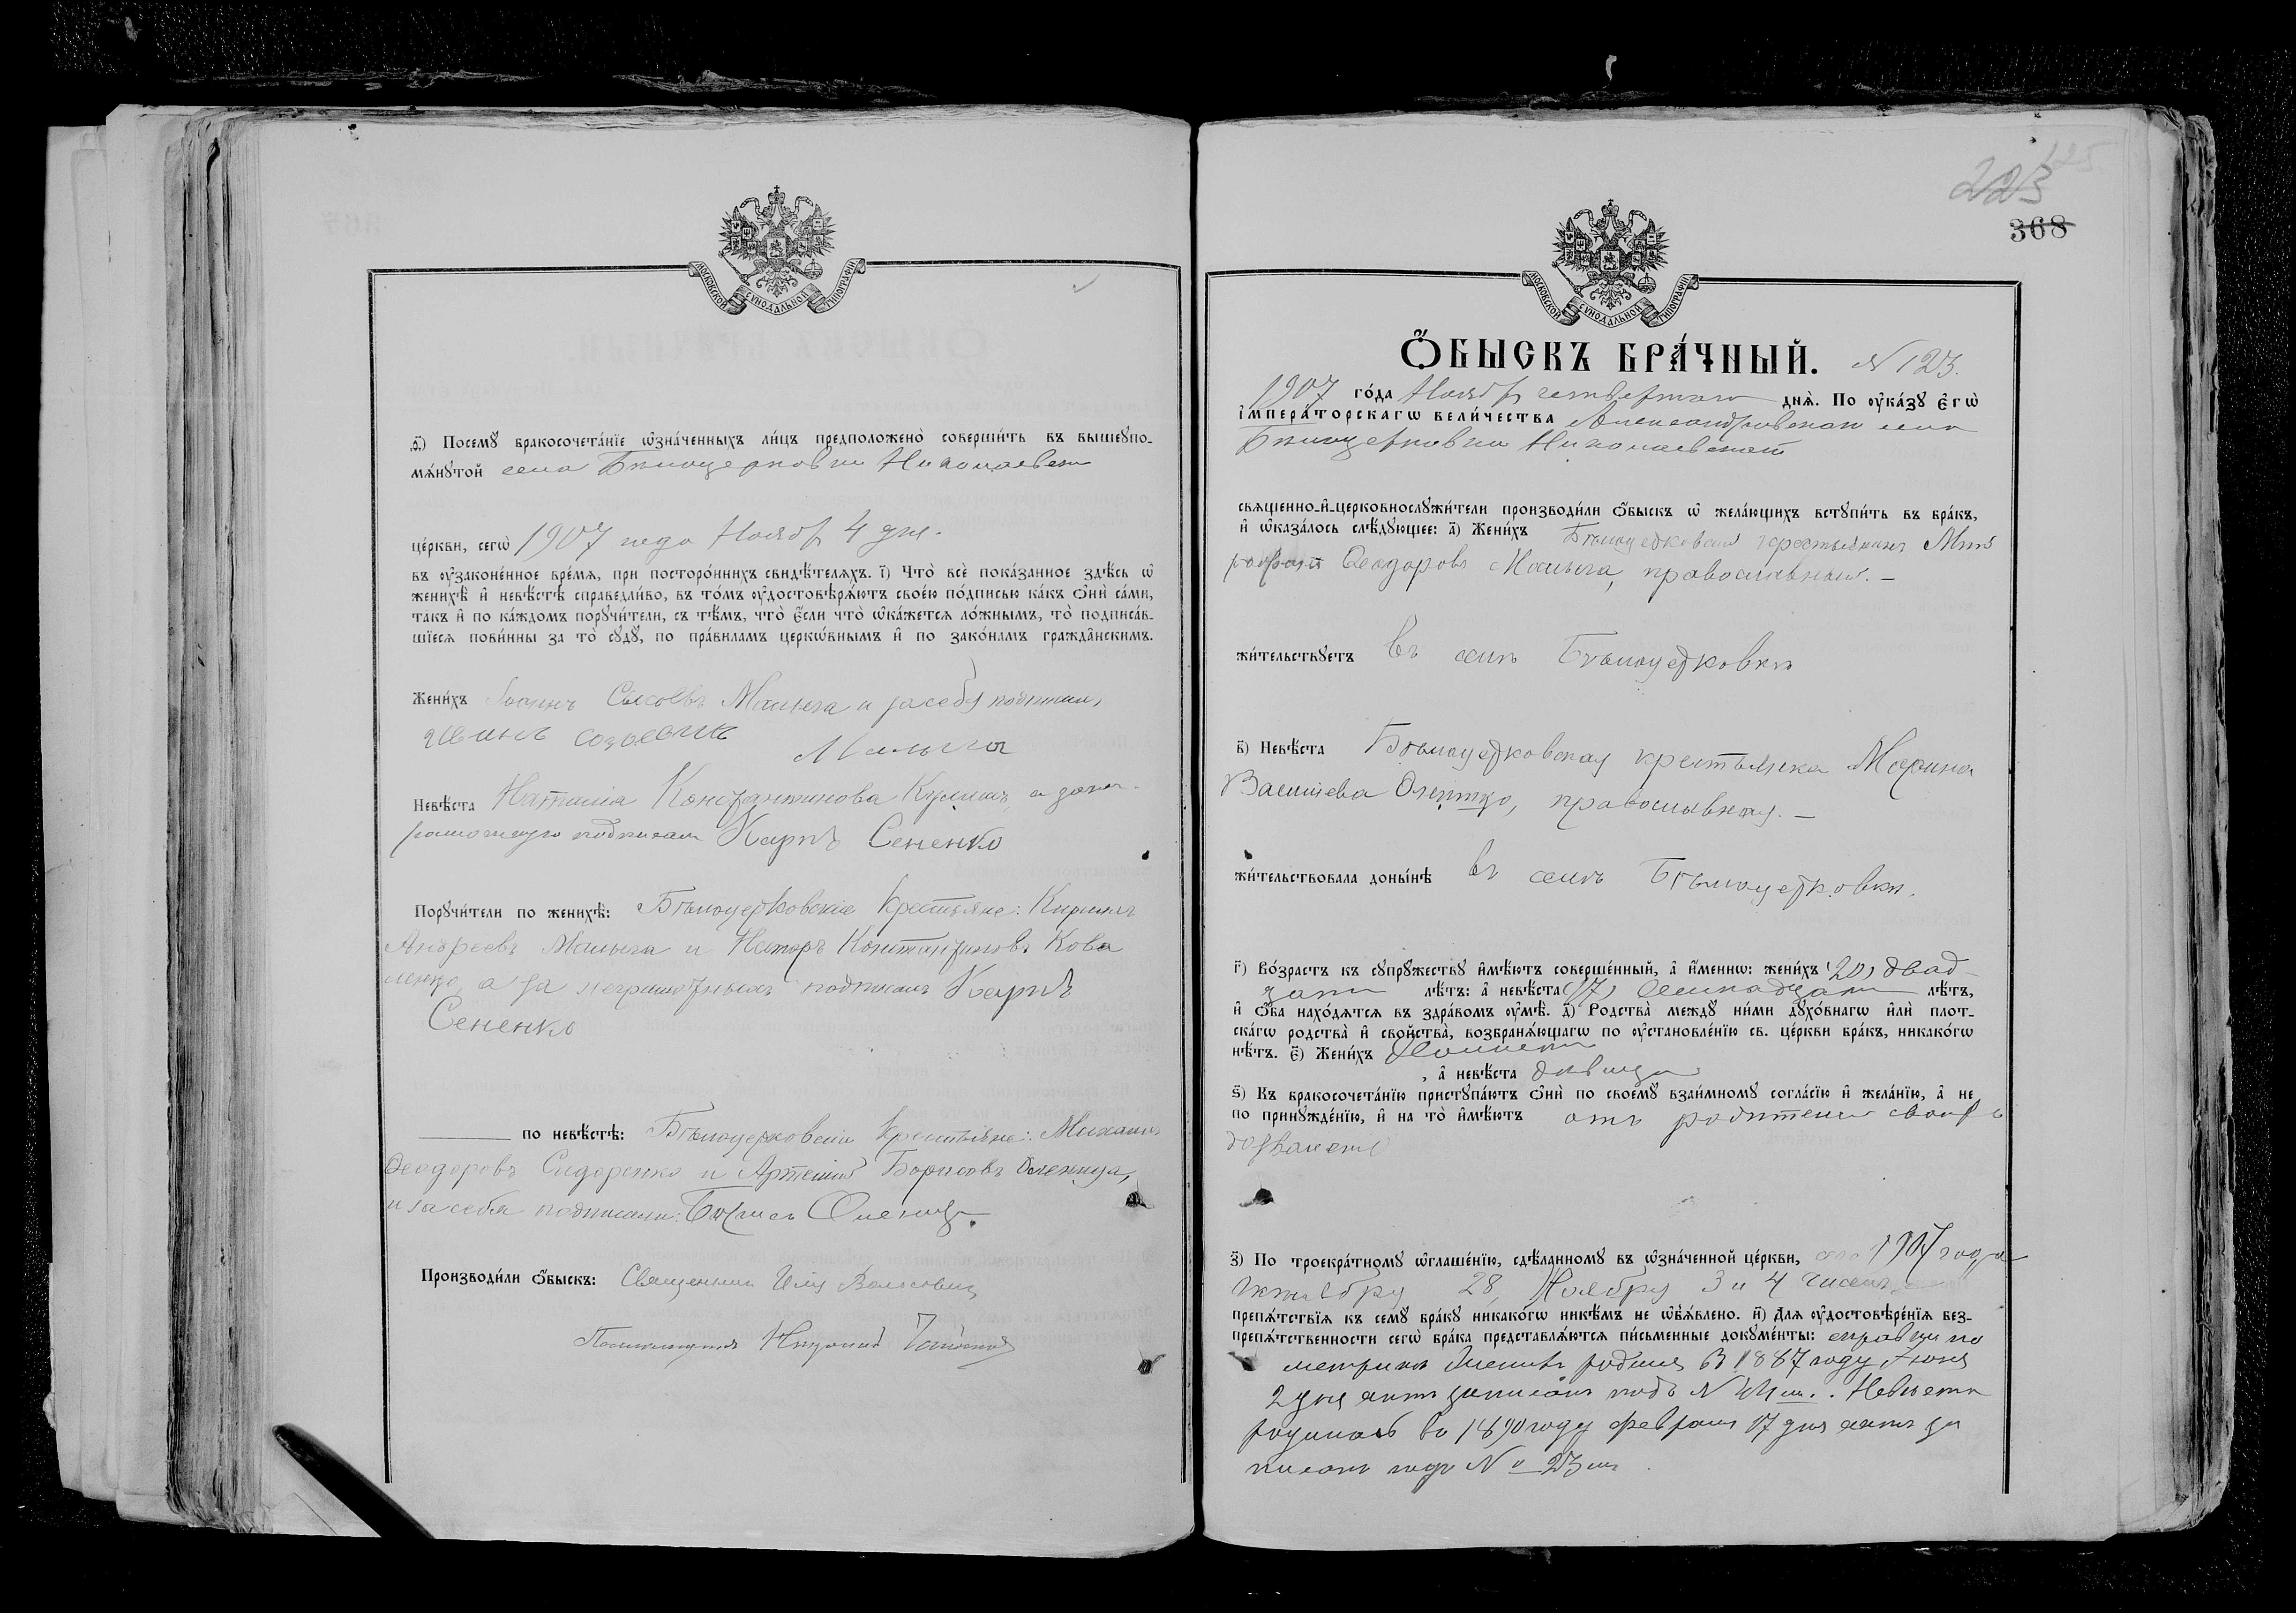 МОСКОВСКОЙ СѴНОДАЛЬНОЙ ТИПОГРАФІИ
Посемꙋ̀ бракосочета́нїе ѡ҆зна́ченныхъ ли́цъ предположено̀ соверши́ть въ вышеꙋпо-
мѧ́нꙋтой села Бѣлоцерковки Николаевской
це́ркви, сегѡ̀ 1907 года Ноябр 4 дня.
въ ᲂу҆зако́ненное вре́мѧ, при посторо́ннихъ свидѣ́телѧхъ. і҃) Что̀ всѐ пока́занное здѣ́сь ѡ҆
женихѣ̀ и҆ невѣ́стѣ справедли́во, въ то́мъ ᲂу҆достовѣрѧ́ютъ свое́ю по́дписью ка́къ ѻ҆нѝ са́ми,
та́къ и҆ по ка́ждомъ порꙋчи́тели, съ тѣ́мъ, что̀ є҆́сли что̀ ѡ҆ка́жетсѧ ло́жнымъ, то̀ подписа́в-
шїесѧ пови́нны за то̀ сꙋдꙋ̀, по пра́виламъ церкѡ́внымъ и҆ по зако́намъ гражда́нскимъ.
Жени́хъ Сысоевъ Малыга и за себя подписал,
Малыга
Невѣ́ста Наталія Константинова а за не-
грамотную подписалъ Карпъ Сененко
Порꙋчи́тели по женихѣ̀: Бѣлоцерковскіе крестьяне: Кирилъ
Андреевъ Малыга и Несторъ Константиновъ Кова
ленко, а за неграмотныхъ подписалъ Карпъ
Сененко
по невѣ́стѣ: Бѣлоцерковскіе крестьяне: Михаилъ
Ѳеодоровъ Сидоренко и Артемій Борисовъ Оленица,
и за себя подписали: Борисъ Оленица
Производи́ли ѻ҆́быскъ: Священникъ Илія
Псаломщикъ
368
МОСКОВСКОЙ СѴНОДАЛЬНОЙ ТИПОГРАФІИ
Ѻ҆́БЫСКЪ БРА́ЧНЫЙ. N 123.
1907 го́да Ноябр четвертаго днѧ̀. По ᲂу҆ка́зꙋ є҆гѡ̀
і҆мпера́торскагѡ вели́чества Александровской села
Бѣлоцерковки Николаевской
свѧщенно-и҆-церковнослꙋжи́тели производи́ли ѻ҆́быскъ ѡ҆ жела́ющихъ встꙋпи́ть въ бра́къ,
и҆ ѡ҆каза́лось слѣ́дꙋющее: а҃) Жени́хъ Бѣлоцерковскій крестьянинъ Мит
рофанъ Ѳеодоровъ Малыга, православный. —
жи́тельствꙋетъ въ селѣ Бѣлоцерковкѣ
в҃) Невѣ́ста Бѣлоцерковская крестьянка Марина
Василіева православная. —
жи́тельствовала доны́нѣ въ селѣ Бѣлоцерковкѣ.
г҃) Во́зрастъ къ сꙋпрꙋ́жествꙋ и҆мѣ́ютъ соверше́нный, а҆ и҆́меннѡ: жени́хъ (20) двад-
цати лѣ́тъ: а҆ невѣ́ста (17) семнадцати лѣ́тъ,
и҆ ѻ҆́ба нахо́дѧтсѧ въ здра́вомъ ᲂу҆мѣ̀. д҃) Родства̀ междꙋ̀ ни́ми дꙋхо́внагѡ и҆лѝ плот-
ска́гѡ родства̀ и҆ сво́йства̀, возбранѧ́ющагѡ по ᲂу҆становле́нїю св. це́ркви бра́къ, никако́гѡ
нѣ́тъ. є҃) Жени́хъ холостъ
, а҆ невѣ́ста дѣвица
ѕ҃) Къ бракосочета́нїю пристꙋпа́ютъ ѻ҆нѝ по своемꙋ̀ взаи́мномꙋ согла́сїю и҆ жела́нїю, а҆ не
по принꙋжде́нїю, и҆ на то̀ и҆мѣ́ютъ отъ родителей своихъ
дозволеніе
з҃) По троекра́тномꙋ ѡ҆глаше́нїю, сдѣ́ланномꙋ въ ѡ҆зна́ченной це́ркви, 1907 года
Октября 28, Ноября 3 и 4 чиселъ
препѧ́тствїѧ къ семꙋ̀ бра́кꙋ никако́гѡ никѣ́мъ не ѡ҆б̾ѧ́влено. и҃) Длѧ ᲂу҆достовѣре́нїѧ без-
препѧ́тственности сегѡ̀ бра́ка представлѧ́ютсѧ пи́сьменные докꙋме́нты: справки по
метрикѣ Женихъ родился въ 1887 году Іюня
2 дня актъ записанъ подъ N Невѣста
родилась въ 1890 году февраля 17 дня актъ за
писанъ подъ № 23 мъ